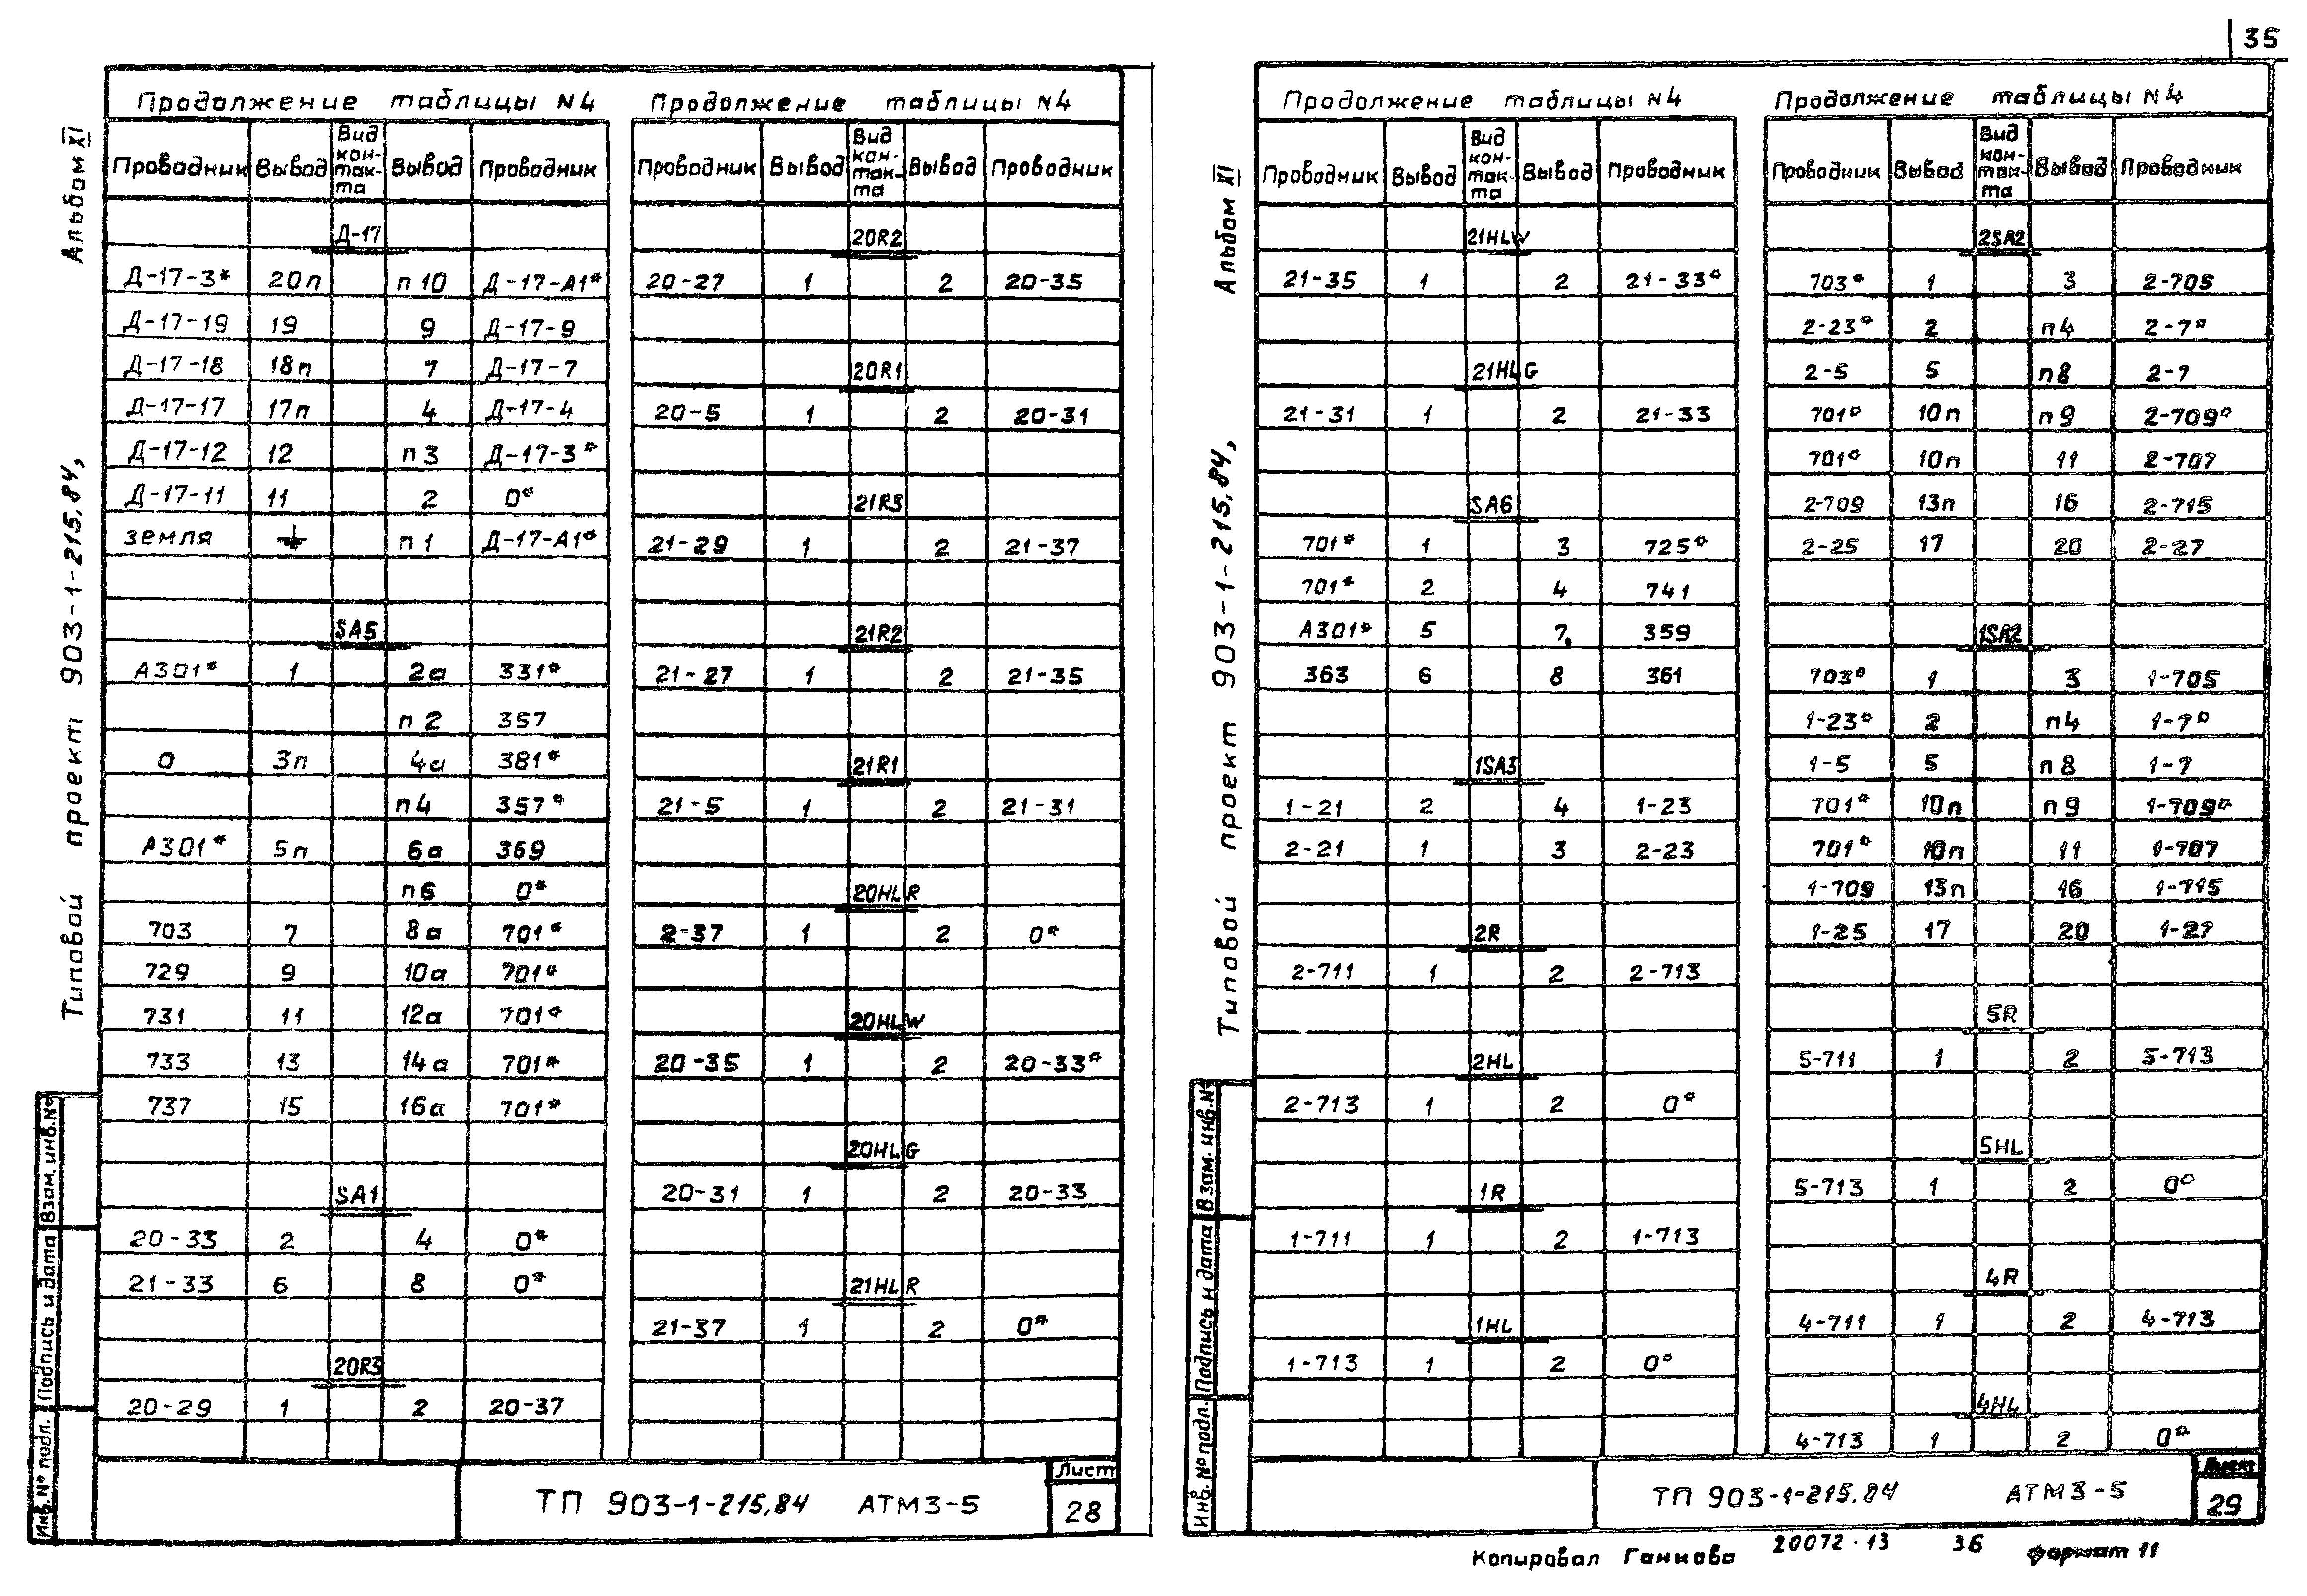 35
Альбом XI
Типовой проект 903-1-215,84,
Продолжение таблицы N4
Проводник Вывод Вид кон-так-та Вывод Проводник
Д-17
Д-17-3* 20п п10 Д-17-А1*
Д-17-19 19 9 Д-17-9
Д-17-18 18п 7 Д-17-7
Д-17-17 17п 4 Д-17-4
Д-17-12 12 п3 Д-17-3*
Д-17-11 11 2 0*
земля ⏚ п1 Д-17-А1*
SA5
А301* 1 2а 331*
п2 357
0 3п 4а 381*
п4 357*
А301* 5п 6а 369
п6 0*
703 7 8а 701*
729 9 10а 701*
731 11 12а 701*
733 13 14а 701*
737 15 16а 701*
SA1
20-33 2 4 0*
21-33 6 8 0*
20R3
20-29 1 2 20-37
Продолжение таблицы N4
Проводник Вывод Вид кон-так-та Вывод Проводник
20R2
20-27 1 2 20-35
20R1
20-5 1 2 20-31
21R3
21-29 1 2 21-37
21R2
21-27 1 2 21-35
21R1
21-5 1 2 21-31
20HLR
2-37 1 2 0*
20HLW
20-35 1 2 20-33*
20HLG
20-31 1 2 20-33
21HLR
21-37 1 2 0*
Инв. № подл. Подпись и дата Взам. инв. №
ТП 903-1-215,84 АТМ3-5
Лист
28
Альбом XI
Типовой проект 903-1-215,84,
Продолжение таблицы N4
Проводник Вывод Вид кон-так-та Вывод Проводник
21HLW
21-35 1 2 21-33*
21HLG
21-31 1 2 21-33
SA6
701* 1 3 725*
701* 2 4 741
А301* 5 7 359
363 6 8 361
1SA3
1-21 2 4 1-23
2-21 1 3 2-23
2R
2-711 1 2 2-713
2HL
2-713 1 2 0*
1R
1-711 1 2 1-713
1HL
1-713 1 2 0*
Продолжение таблицы N4
Проводник Вывод Вид кон-так-та Вывод Проводник
2SA2
703* 1 3 2-705
2-23* 2 п4 2-7*
2-5 5 п8 2-7
701* 10п п9 2-709*
701* 10п 11 2-707
2-709 13п 16 2-715
2-25 17 20 2-27
1SA2
703* 1 3 1-705
1-23* 2 п4 1-7*
1-5 5 п8 1-7
701* 10п п9 1-709*
701* 10п 11 1-707
1-709 13п 16 1-715
1-25 17 20 1-27
5R
5-711 1 2 5-713
5HL
5-713 1 2 0*
4R
4-711 1 2 4-713
4HL
4-713 1 2 0*
Инв. № подл. Подпись и дата Взам. инв. №
ТП 903-1-215.84 АТМ3-5
Лист
29
Копировал Ганкова 20072-13 36 формат 11